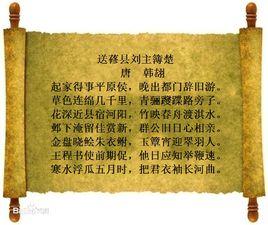 送蓨县刘主簿楚
唐 韩翃
起家得事平原侯，晚出都门辞旧游。
草色连绵几千里，青骊躞蹀路旁子。
花深近县宿河阳，竹映春舟渡淇水。
邺下淹留佳赏新，群公旧日心相亲。
金盘晓鲙朱衣鲋，玉簟宵迎翠羽人。
王程书使前期促，他日应知举鞭速。
寒水浮瓜五月时，把君衣袖长河曲。